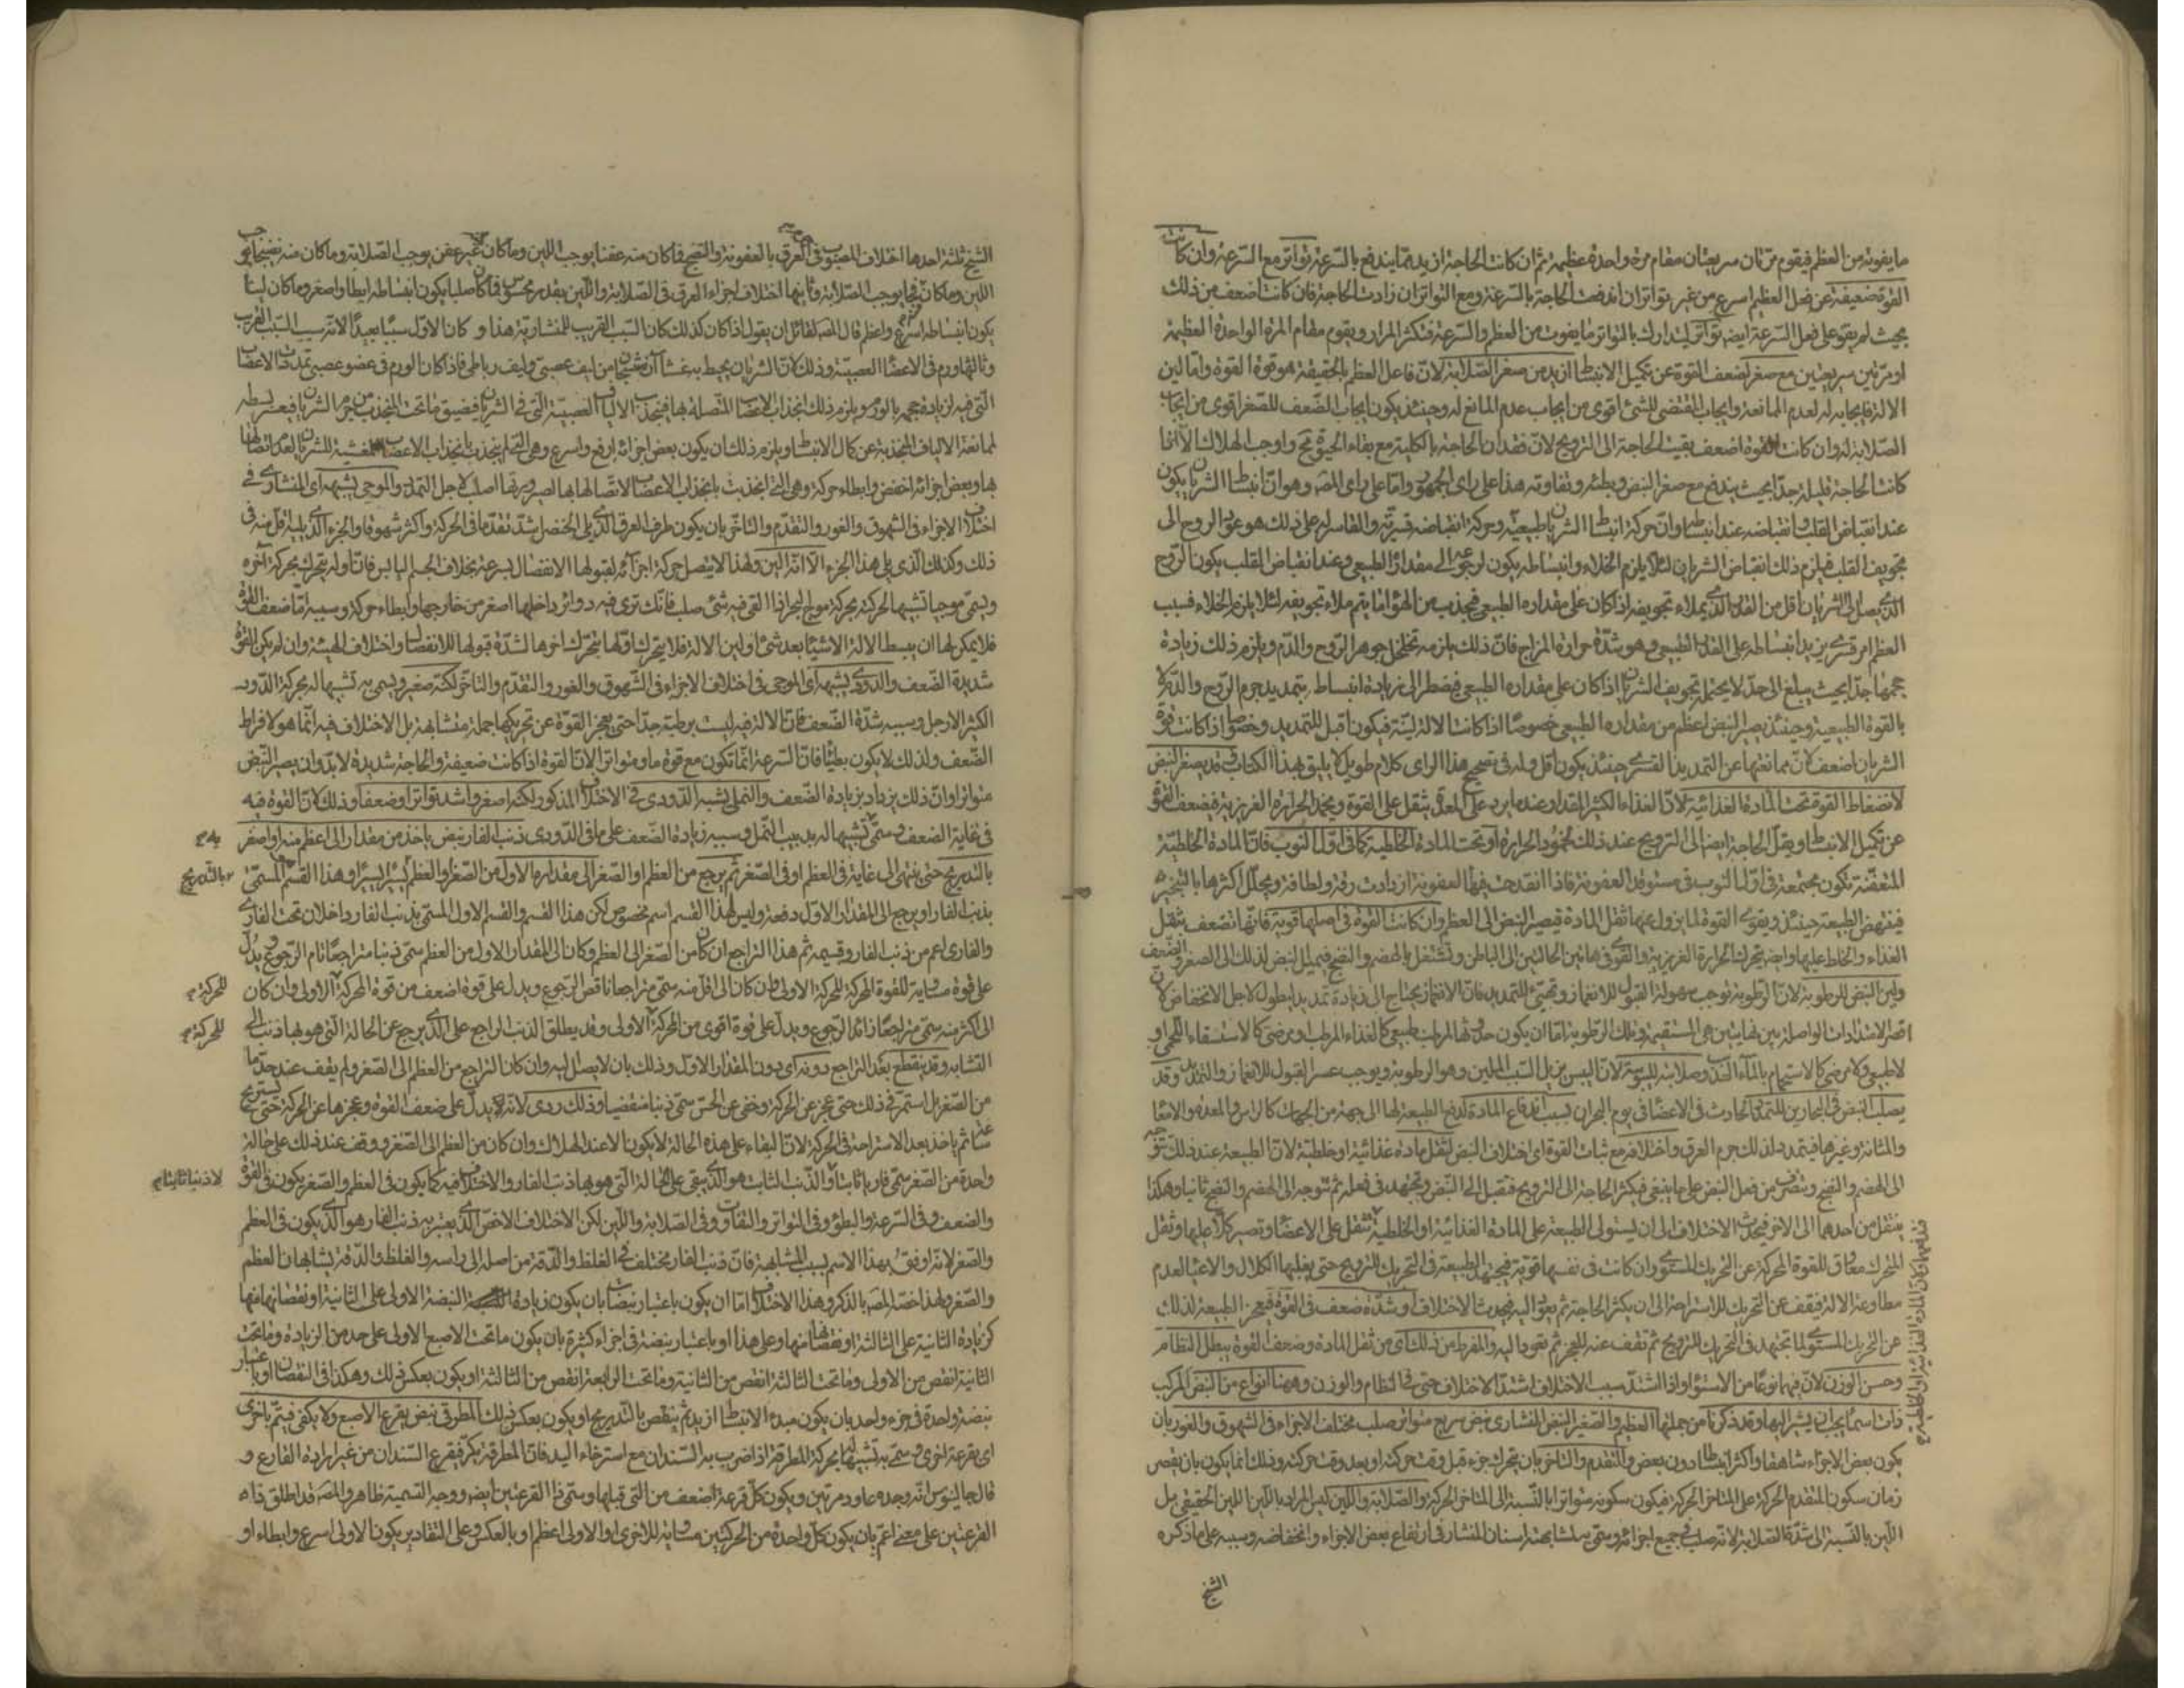 ما يفوته من العظم فيقوم مرتان سريعتان مقام مرة واحدة عظيمة ثم ان كانت الحاجة ازيد مما يندفع بالسرعة تواتر مع السرعة وان كانت
القوة ضعيفة عن فعل العظم اسرع من غير تواتر ان اندفعت الحاجة بالسرعة ومع التواتر ان زادت الحاجة فان كانت اضعف من ذلك
بحيث لم يقو على فعل السرعة ايضه تواتر ليتدارك بالتواتر ما يفوت من العظم والسرعة فتكثر المرار ويقوم مقام المرة الواحدة العظيمة
او مرتين سريعتين مع صغر لضعف القوة عن تكميل الانبساط ازيد من صغر الصلابة لان فاعل العظم بالحقيقة هو قوة القوة واما لين
الالة فايجابه له لعدم الممانعة وايجاب المقتضى للشئ اقوى من ايجاب عدم المانع له وحينئذ يكون ايجاب الضعف للصغر اقوى من ايجاب
الصلابة له وان كانت القوة اضعف بقيت الحاجة الى الترويح لان فقدان الحاجة بالكلية مع بقاء الحيوة مح واوجب الهلاك الا انها
كانت الحاجة قليلة جدا بحيث يندفع مع صغر النبض وبطئه وتفاوته هذا على راى الجمهور واما على راى المصه وهو ان انبساط الشريان يكون
عند انقباض القلب وانقباضه عند انبساطه وان حركة انبساط الشريان طبيعية وحركة انقباضه قسرية والقاسر له على ذلك هو عود الروح الى
تجويف القلب فيلزم ذلك انقباض الشريان لئلا يلزم الخلاء وانبساطه يكون لرجوعه الى مقداره الطبيعى وعند انقباض القلب يكون الروح
الذى يصل الى الشريان اقل من القدر الذى يملاء تجويفه اذا كان على مقداره الطبيعى فيجذب من الهواء ما يتم ملاء تجويفه لئلا يلزم الخلاء فسبب
العظم امر قسرى يزيد انبساطه على القدر الطبيعى وهو شدة حرارة المزاج فان ذلك يلزمه تخلخل جوهر الروح والدم ويلزم ذلك زيادة
حجمها جدا بحيث يبلغ الى حد لا يحتمله تجويف الشريان اذا كان على مقداره الطبيعى فيضطر الى زيادة انبساط بتمديد جرم الروح والدم لا
بالقوة الطبيعية وحينئذ يصير النبض اعظم من مقداره الطبيعى خصوصا اذا كانت الالة لينة فيكون اقبل للتمديد وخصوصا اذا كانت قوة
الشريان اضعف لان ممانعتها عن التمديد القسرى حينئذ يكون اقل وله فى تصحيح هذا الراى كلام طويل لا يليق بهذا الكتاب وقد يصغر النبض
لانضغاط القوة تحت المادة الغذائية لان الغذاء الكثير المقدار عند ما يرد على المعدة يثقل على القوة ويخمد الحرارة الغريزية فيضعف القوة
عن تكميل الانبساط ويقل الحاجة ايضا الى الترويح عند ذلك لخمود الحرارة او تحت المادة الخلطية كما فى اول النوب فان المادة الخلطية
المتعفنة تكون مجتمعة فى اول النوب فى مستوقد العفونة فاذا انقدحت فيها العفونة ازدادت رقة ولطافة ويحلل اكثرها بالتبخير
فينهض الطبيعة حينئذ ويقوى القوة لما يزول عنها ثقل المادة فيصير النبض الى العظم وان كانت القوة فى اصلها قوية فانها تضعف بثقل
الغذاء والخلط عليها وايضه يتحرك الحرارة الغريزية والقوى فى هاتين الحالتين الى الباطن وتشتغل بالهضم والنضج فيميل النبض لذلك الى الصغر والضعف
ولين النبض للرطوبة لان الرطوبة توجب سهولة القبول للانغماز وتهيئ للتمديد فان الانغماز يحتاج الى زيادة تمديد لبطول لاجل الانخفاض لان
اقصر الامتدادات الواصلة بين نهايتين هى المستقيمة وتلك الرطوبة اما ان يكون حدوثها المرطب طبيعى كالغذاء المرطب او مرضى كالاستسقاء اللحمى او
لا طبيعى ولا مرضى كالاستحمام بالماء العذب وصلابته لليبوسة لان اليبس يزيل السبب الملين وهو الرطوبة ويوجب عسر القبول للانغماز والتمدد وقد
يصلب النبض فى البحارين للتمدد الحادث فى الاعضاء فى يوم البحران بسبب اندفاع المادة لدفع الطبيعة لها الى جهة من الجهات كالراس والمعدة والامعاء
والمثانة وغيرها فيتمدد لذلك جرم العرق واختلافه مع ثبات القوة اى اختلاف النبض لثقل مادة غذائية او خلطية لان الطبيعة عند ذلك تتوجه
الى الهضم والنضج وتنصرف من فعل النبض على ما ينبغى فيكثر الحاجة الى الترويح فتقبل الى النبض وتجتهد فى فعله ثم تتوجه الى الهضم والنضج ثانيا وهكذا
ينتقل من احدهما الى الاخر فيحدث الاختلاف الى ان يستولى الطبيعة على المادة الغذائية او الخلطية تثقل على الاعضاء وتصير كلا عليها وثقل
المتحرك معاوق للقوة المحركة عن التحريك المستوى وان كانت فى نفسها قوية فيجتهد الطبيعة فى التحريك للترويح حتى يغلبها الكلال والاعياء لعدم
مطاوعة الالة فيقف عن التحريك للاستراحة الى ان يكثر الحاجة ثم يعود اليه فيحدث الاختلاف او شدة ضعف فى القوة فيعجز الطبيعة لذلك
عن التحريك المستوى لما تجتهد فى التحريك للترويح ثم تقف عنه للعجز ثم تعود اليه والمفرط من ذلك اى من ثقل المادة وضعف القوة يبطل النظام
وحسن الوزن لان فيهما نوعا من الاستواء واذا اشتد سبب الاختلاف اشتد الاختلاف حتى فى النظام والوزن وههنا انواع من النبض المركب
ذات اسماء يجب ان يشير اليها وقد ذكرنا من جملتها العظيم والصغير النبض المنشارى نبض سريع متواتر صلب مختلف الاجزاء فى الشهوق والغور بان
يكون بعض الاجزاء شاهقا واكثر انبساطا دون بعض والتقدم والتاخر بان يتحرك جزء قبل وقت حركته او بعد وقت حركته وذلك انما يكون بان يقصر
زمان سكون المتقدم الحركة على المتاخر الحركة فيكون سكونه متواترا بالنسبة الى المتاخر الحركة والصلابة واللين ليس المراد باللين اللين الحقيقى بل
اللين بالنسبة الى شدة الصلابة لانه صلب فى جميع اجزائه وسمى به لمشابهته اسنان المنشار فى ارتفاع بعض الاجزاء وانخفاضه وسببه على ما ذكره
الشيخ
الشيخ ثلثة احدها اختلاف المصبوب فى العرق بالعفونة والنضج فما كان منه عفنا يوجب اللين وما كان غير عفن يوجب الصلابة وما كان منه نضيجا يوجب
اللين وما كان فجا يوجب الصلابة وثانيها اختلاف اجزاء العرق فى الصلابة واللين بقدر محسوس فما كان صلبا يكون انبساطه ابطا واصغر وما كان لينا
يكون انبساطه اسرع واعظم قال المصه لقائل ان يقول اذا كان كذلك كان السبب القريب للمنشارية هذا و كان الاول سببا بعيدا لانه سبب السبب القريب
وثالثها ورم فى الاعضاء العصبية وذلك لان الشريان يحيط به غشاآن منتسجان من ليف عصبى وليف رباطى فاذا كان الورم فى عضو عصبى تمددت الاعضاب
التى فيه لزيادة حجمه بالورم ويلزم ذلك انجذاب الاعصاب المتصلة بها فينجذب الالياف العصبية التى فى الشريان فيضيق ما تحت المنجذب من جرم الشريان فيعسر بسطه
لممانعة الالياف المنجذبة عن كمال الانبساط ويلزم ذلك ان يكون بعض اجزائه ارفع واسرع وهى التى لم ينجذب بانجذاب الاعصاب المغشية للشريان لعدم اتصالها
بها وبعض اجزائه اخفض وابطاء حركة وهى التى انجذبت بانجذاب الاعصاب لاتصالها بها لصيرورتها اصلب لاجل التمدد والموجى يشبهه اى المنشارى فى
اختلاف الاجزاء فى الشهوق والغور والتقدم والتاخر بان يكون طرف العرق الذى يلى الخنصر اشد تقدما فى الحركة واكثر شهوقا والجزء الذى يليه اقل منه فى
ذلك وكذلك الذى يلى هذا الجزء الا انه الين ولهذا لا يتصل حركة اجزائه لقبولها الانفصال بسرعة بخلاف الجسم اليابس فان اوله يتحرك بحركة آخره
ويسمى موجيا تشبيها لحركته بحركة موج البحر اذا القى فيه شئ صلب فانك ترى فيه دوائر داخلها اصغر من خارجها وابطاء حركة وسببه اما ضعف القوة
فلا يمكن لها ان يبسط الالة الا شيئا بعد شئ او لين الالة فلا يتحرك اولها بتحرك اخرها لشدة قبولها للانفصال واختلاف الهيئة وان لم يكن القوة
شديدة الضعف والدودى يشبهه اى الموجى فى اختلاف الاجزاء فى الشهوق والغور والتقدم والتاخر لكنه صغير ويسمى به تشبيها له بحركة الدود
الكثير الارجل وسببه شدة الضعف فان الالة فيه ليست برطبة جدا حتى يعجز القوة عن تحريكها جملة متشابهة بل الاختلاف فيه انما هو لافراط
الضعف ولذلك لا يكون بطيئا فان السرعة انما تكون مع قوة ما ومتواتر الان القوة اذا كانت ضعيفة والحاجة شديدة لا بد وان يصير النبض
متواترا وان ذلك يزداد بزيادة الضعف والنملى يشبه الدودى فى الاختلاف المذكور لكنه اصغر واشد تواترا وضعفا وذلك لان القوة فيه
فى غاية الضعف وسمى تشبيها له بدبيب النمل وسببه زيادة الضعف على ما فى الدودى ذنب الفار نبض ياخذ من مقدار الى اعظم منه او اصغر
بالتدريج حتى ينتهى الى غاية فى العظم او فى الصغر ثم يرجع من العظم او الصغر الى مقداره الاول من الصغر والعظم يسيرا يسيرا وهذا القسم المسمى
بذنب الفار او يرجع الى المقدار الاول دفعة وليس لهذا القسم اسم مخصوص لكن هذا القسم والقسم الاول المسمى بذنب الفار داخلان تحت الفارى
والفارى اعم من ذنب الفار وقسيمه ثم هذا التراجع ان كان من الصغر الى العظم وكان الى المقدار الاول من العظم سمى ذنبا متراجعا تام الرجوع ويدل
على قوة مساوية للقوة المحركة للحركة الاولى وان كان الى اقل منه سمى متراجعا ناقص الرجوع ويدل على قوة اضعف من قوة المحركة الاولى وان كان
الى اكثر منه سمى متراجعا زائد الرجوع ويدل على قوة اقوى من المحركة الاولى وقد يطلق الذنب الراجع على الذى يرجع عن الحالة التى هو بها ذنب الى
التشابه وقد ينقطع بعد التراجع دونه اى دون المقدار الاول وذلك بان لا يصل اليه وان كان التراجع من العظم الى الصغر ولم يقف عند حد ما
من الصغر بل استمر فى ذلك حتى عجز عن الحركة وخفى عن الحس سمى ذنبا منقضيا وذلك ردى لانه يدل على ضعف القوة وعجزها عن الحركة حتى يستريح
ثم ياخذ بعد الاستراحة فى الحركة لان البقاء على هذه الحالة لا يكون الا عند الهلاك وان كان من العظم الى الصغر ووقف عند ذلك على حالة
واحدة من الصغر سمى فاريا ثابتا والذنب الثابت هو الذى يبقى على الحالة التى هو بها ذنب الفار والاختلاف فيه كما يكون فى العظم والصغر يكون فى القوة
والضعف وفى السرعة والبطؤ وفى التواتر والتفاوت وفى الصلابة واللين لكن الاختلاف الاخص الذى يعتبر به ذنب الفار هو الذى يكون فى العظم
والصغر لانه اوفق بهذا الاسم بسبب المشابهة فان ذنب الفار مختلف فى الغلظ والدقة من اصله الى راسه والغلظ والدقة يشابهان العظم
والصغر ولهذا خصه المصه بالذكر وهذا الاختلاف اما ان يكون باعتبار نبضات بان يكون زيادة النبضة الاولى على الثانية او نقصانها منها
كزيادة الثانية على الثالثة او نقصانها منها وعلى هذا او باعتبار نبضة فى اجزاء كثيرة بان يكون ما تحت الاصبع الاولى على حد من الزيادة وما تحت
الثانية انقص من الاولى وما تحت الثالثة انقص من الثانية وما تحت الرابعة انقص من الثالثة او يكون بعكس ذلك وهكذا فى النقصان او باعتبار
نبضة واحدة فى جزء واحد بان يكون مبدء الانبساط ازيد ثم ينقص بالتدريج او يكون بعكس ذلك المطرقى نبض يقرع الاصبع ولا يكفى فيتم باخرى
اى بقرعة اخرى وسمى به تشبيها بحركة المطرقة اذا ضرب به السندان مع استرخاء اليد فان المطرقة يكر فيقرع السندان من غير ارادة القارع و
قال جالينوس انه وجده عاود مرتين ويكون كل قرعة اضعف من التى قبلها وسمى ذا القرعتين ايضه ووجه التسمية ظاهر والمصه قد اطلق ذاه
القرعتين على معنى اعم بان يكون كل واحدة من الحركتين مساوية للاخرى او الاولى اعظم او بالعكس وعلى التقادير يكون الاولى اسرع وابطاء او
بالتدريج
للحركة
للحركة